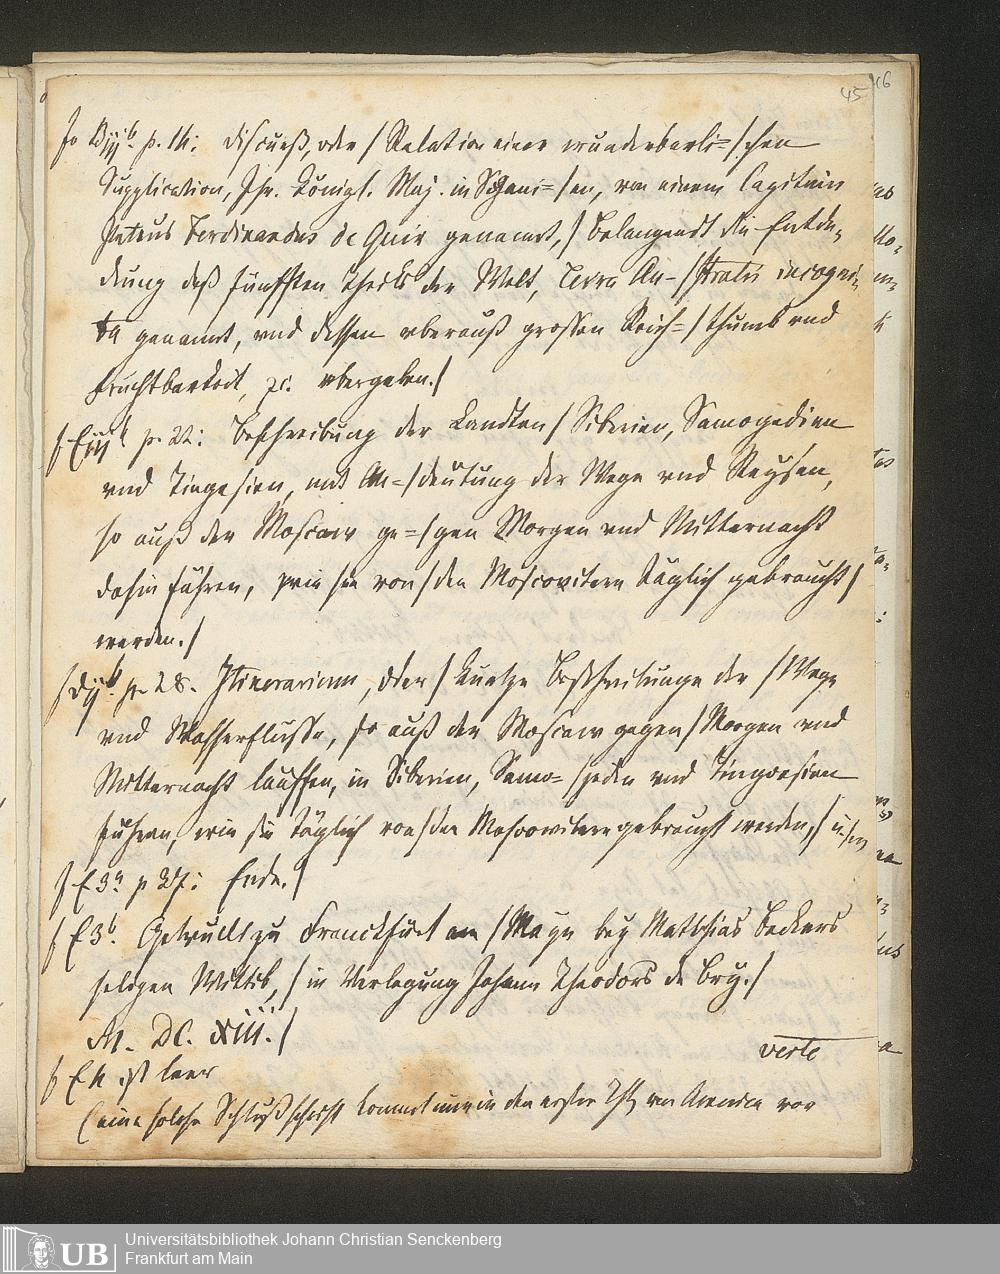 45 46
fo Biij b. p. 14: Discurß, oder / Relation einer wunderbarli= / chen
Supplication, Ihr. Königl. Maj. in Spani= / en, von einem Capitain
Petrus Ferdinandes de Quir genannt, / Belangendt die Entde,,
ckung deß fünfften Theils der Welt, Terra Au- / stralis incogni,,
ta genannt, vnd dessen vberauß grossen Reich= / thumb vnd
fruchtbarkeit, ꝛc. vbergeben. /
p. 22: Beschreibung der Landten / Siberien, Samogedien
vnd Tingesien, mit An= / deutung der Wege vnd Reysen,
so auß der Moscaw ge= / gen Morgen vnd Mitternacht
dahin führen, wie sie von / den Moscovitern täglich gebraucht /
werden. /
p. 28. Itinerarium, Oder / Kurtze Beschreibunge der / Wege
vnd Wasserflüsse, so auß der Moscaw gegen / Morgen vnd
Mitternacht lauffen, in Siberien, Samo= / jeden vnd Tingoesien
führen, wie sie täglich von / den Moscovitern gebraucht werden, /
f E3a p 37: Ende. /
f E3b. Getruckt zu Franckfurt am / Mayn bey Matthias Beckers
seligen Wittib, / in Verlegung Johann Theodors de Bry. /
M. DC. XIII. /
verte
f E4 ist leer
(eine solche Schlußschrift kommt nur in den ersten Th. von America vor
UB
Universitätsbibliothek Johann Christian Senckenberg
Frankfurt am Main